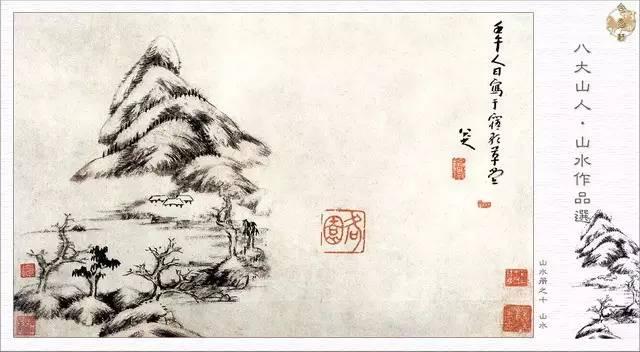 壬午人日寫于寤歌草堂
八大
八大山人・山水作品選
山水册之十 山水